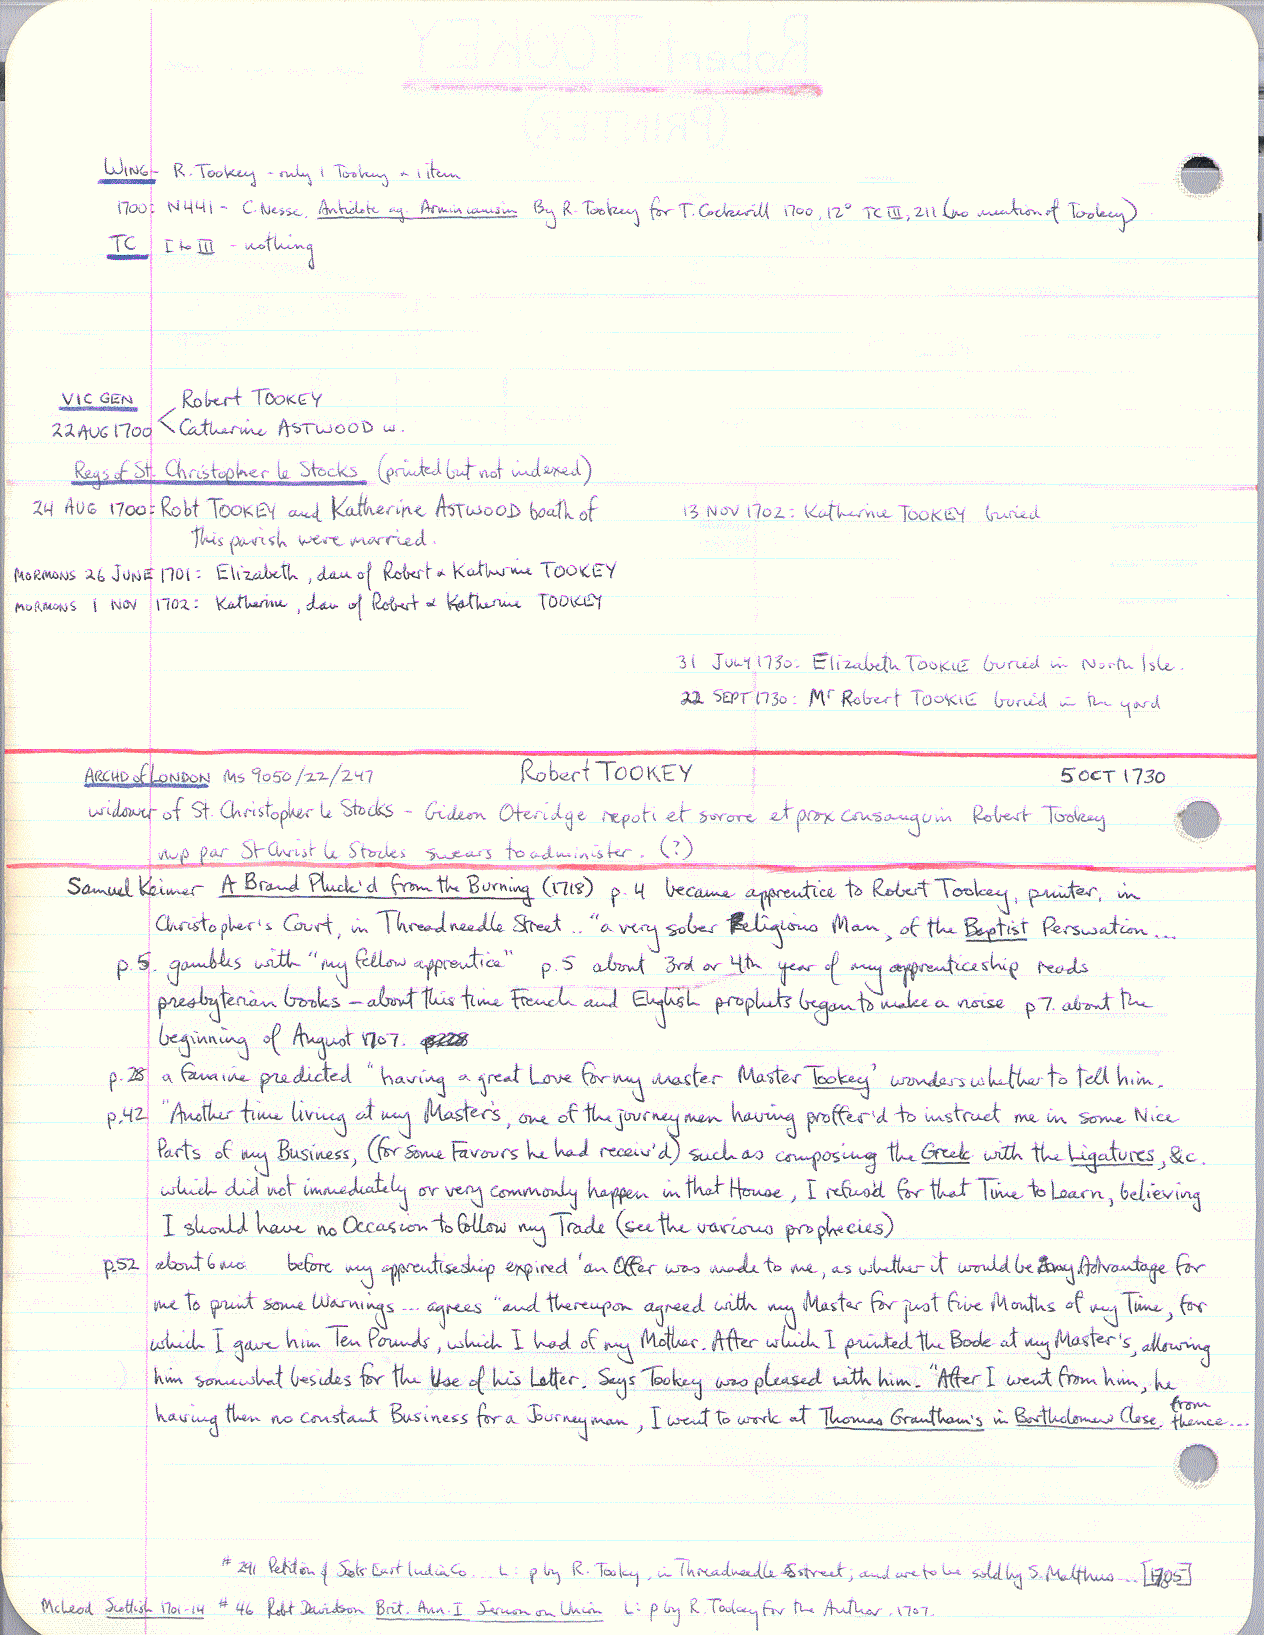 Robert TOOKEY
(PRINTER)
WING - R. Tookey - only 1 Tookey & 1 item
1700: N441 - C. Nesse, Antidote ag. Arminianism By R. Tookey for T. Cockerill 1700, 12° TC III, 211 (no mention of Tookey)
TC I to III - nothing
VIC GEN Robert TOOKEY
22 AUG 1700 < Catherine ASTWOOD w.
Regs of St. Christopher le Stocks (printed but not indexed)
24 AUG 1700: Robt TOOKEY and Katherine ASTWOOD boath of
this parish were married.
13 NOV 1702: Katherine TOOKEY buried
MORMONS 26 JUNE 1701: Elizabeth, dau of Robert & Katherine TOOKEY
MORMONS 1 NOV 1702: Katherine, dau of Robert & Katherine TOOKEY
31 JULY 1730: Elizabeth TOOKIE buried in North Isle.
22 SEPT 1730: Mr Robert TOOKIE buried in the yard
ARCHD of LONDON MS 9050/22/247 Robert TOOKEY 5 OCT 1730
widower of St. Christopher le Stocks - Gideon Oteridge nepoti et sorore et prox consanguin Robert Tookey
nup par St Christ le Stocks swears to administer. (?)
Samuel Keimer A Brand Pluck'd from the Burning (1718) p. 4 became apprentice to Robert Tookey, printer, in
Christopher's Court, in Threadneedle Street .. "a very sober Religious Man, of the Baptist Perswation ...
p.5. gambles with "my fellow apprentice" p.5 about 3rd or 4th year of my apprenticeship reads
presbyterian books - about this time French and English prophets began to make a noise p 7. about the
beginning of August 1707.
p.28 a famine predicted "having a great Love for my master Master Tookey' wonders whether to tell him.
p.42 "Another time living at my Master's, one of the journeymen having proffer'd to instruct me in some Nice
Parts of my Business, (for some Favours he had receiv'd) such as composing the Greek with the Ligatures, &c.
which did not immediately or very commonly happen in that House, I refus'd for that Time to Learn, believing
I should have no Occasion to follow my Trade (see the various prophecies)
p.52 about 6 mo before my apprentiseship expired 'an Offer was made to me, as whether it would be any Advantage for
me to print some Warnings ... agrees "and thereupon agreed with my Master for just five Months of my Time, for
which I gave him Ten Pounds, which I had of my Mother. After which I printed the Book at my Master's, allowing
him somewhat besides for the Use of his Letter. Says Tookey was pleased with him. "After I went from him, he
having then no constant Business for a Journeyman, I went to work at Thomas Grantham's in Bartholomew Close, from thence ...
# 291 Petition of Scots East India Co ... L: p by R. Tooky, in Threadneedle street; and are to be sold by S. Malthus ... [1705]
McLeod Scottish 1701-14 # 46 Robt Davidson Brit. Ann. I Sermon on Union L: p by R. Tookey for the Author. 1707.